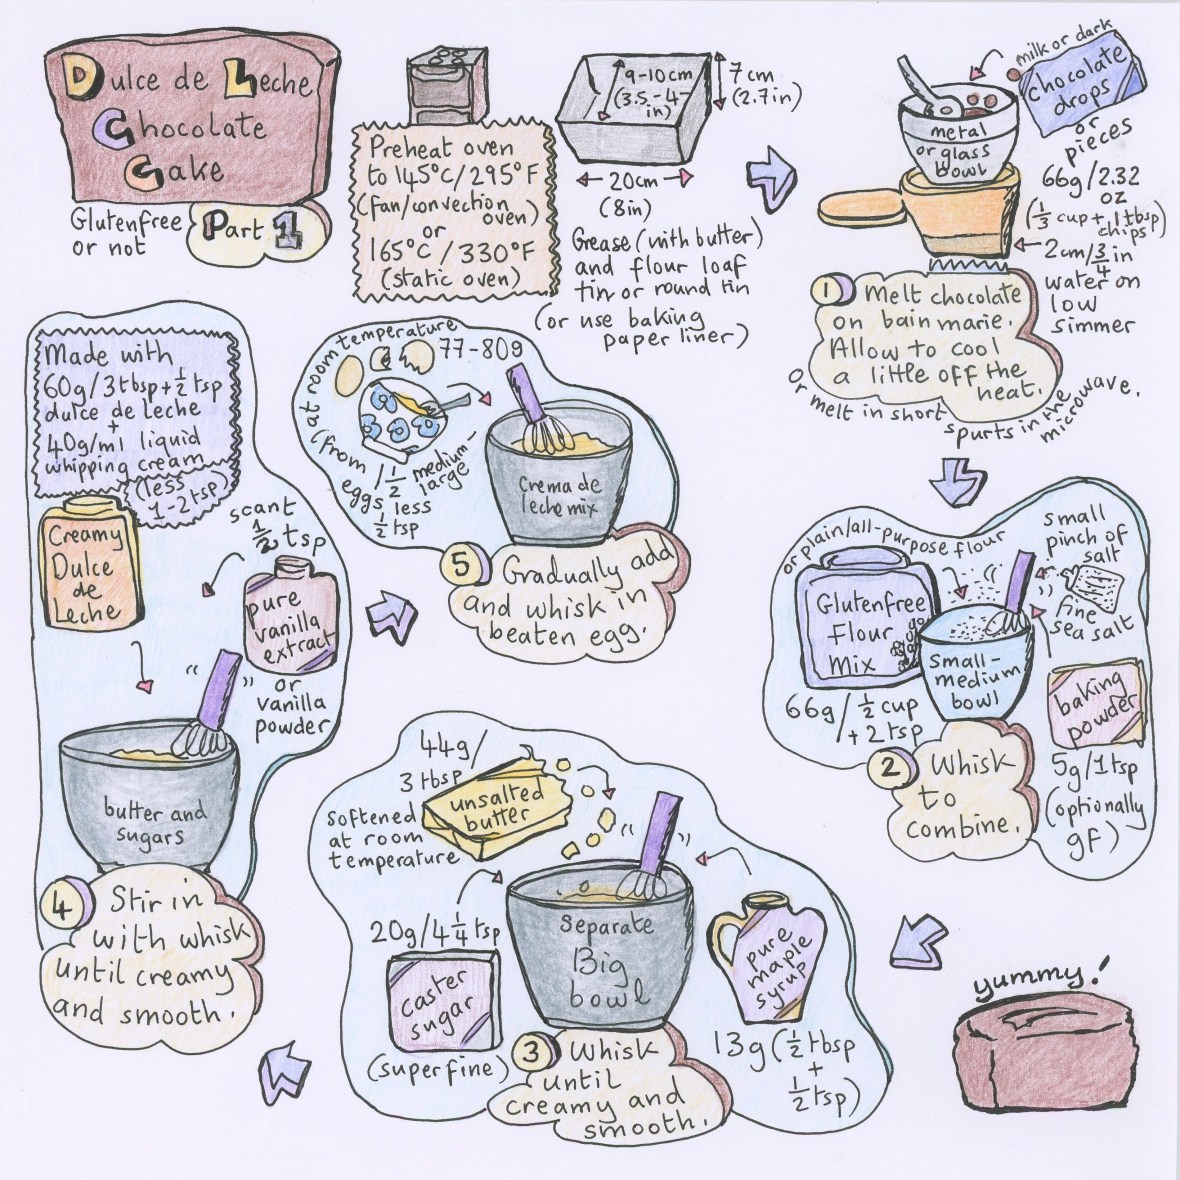 Dulce de Leche
Chocolate
Cake
Glutenfree
or not
Part 1
Preheat oven
to 145°C/295°F
(fan/convection
oven)
or
165°C/330°F
(static oven)
9-10cm
(3.5-4-
in)
7cm
(2.7in)
20cm
(8in)
Grease (with butter)
and flour loaf
tin or round tin
(or use baking
paper liner)
milk or dark
chocolate
drops
or
pieces
66g/2.32
oz
(1/3 cup + 1 tbsp
chips)
metal
or glass
bowl
2cm/3/4 in
water on
low
simmer
1 Melt chocolate
on bain marie.
Allow to cool
a little off the
heat.
Or melt in short spurts in the microwave.
or plain/all-purpose flour
Glutenfree
Flour
Mix
66g/1/2 cup
+ 2 tsp
small
pinch of
salt
fine
sea salt
small-
medium
bowl
baking
powder
5g/1tsp
(optionally
gf)
2 Whisk
to
combine.
44g/
3 tbsp
softened
at room
temperature
unsalted
butter
20g/4 1/4 tsp
caster
sugar
(superfine)
Separate
Big
bowl
pure
maple
syrup
13g (1/2 tbsp
+
1/2 tsp)
3 Whisk
until
creamy and
smooth.
Made with
60g/3 tbsp + 1/2 tsp
dulce de leche
+
40g/ml liquid
whipping cream
(less
1-2 tsp)
Creamy
Dulce
de
Leche
scant
1/2 tsp
pure
vanilla
extract
or
vanilla
powder
butter and
sugars
4 Stir in
with whisk
until creamy
and smooth.
(at room temperature
77-80g
(from 1 1/2 medium-
large
eggs less
1/2 tsp
Crema de
leche mix
5 Gradually add
and whisk in
beaten egg.
yummy!